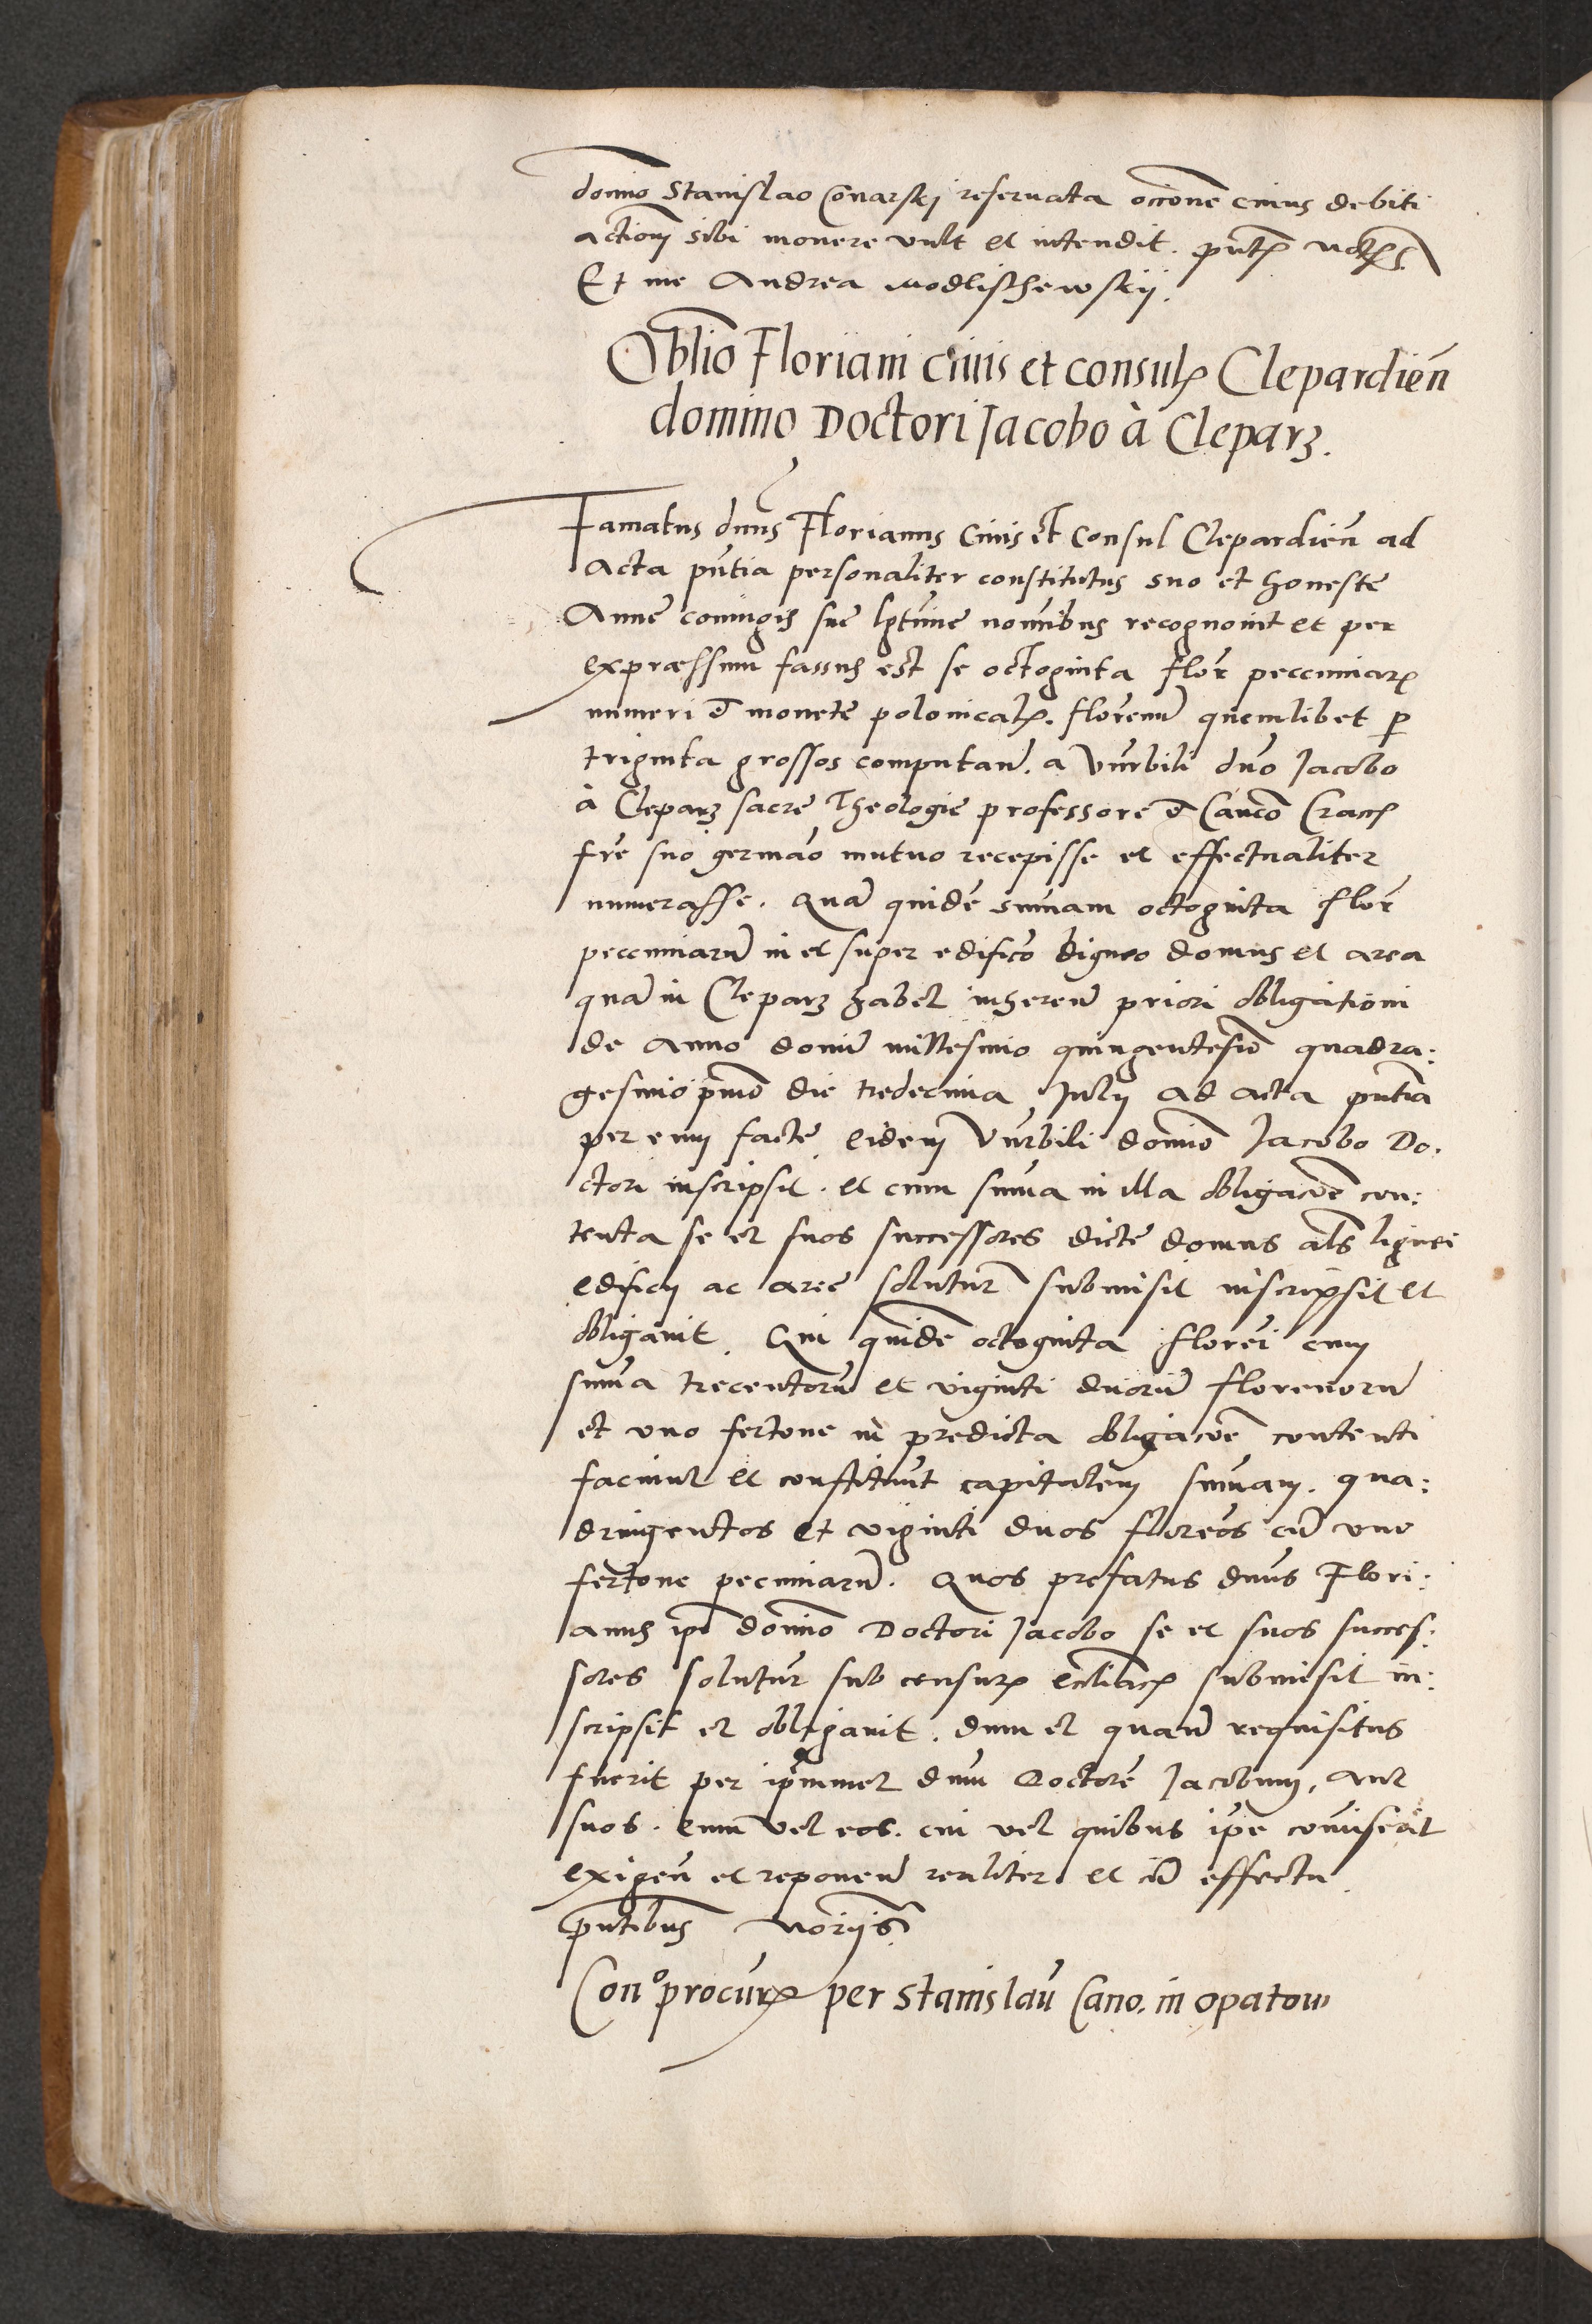 domino Stanislao Conarskj reseruata occōne cuius debiti
actiom̄ sibi mouere vult et intendit. pñt̄
Et me Andrea Modlischewskij.
Oblīo Floriani ciuis et consulꝭ Clepardień
domino Doctori Jacobo à Cleparz.
Famatus dn̄us Florianus Ciuis et Consul Clepardień ad
Acta pn̄tia personaliter constitutus suo et honestę
Annę coniugis suę lg̃timę noīnibus recognouit et per
expraessum fassus est se octoginta flor̄ peccuniarꝭ
numeri et monetę polonicalꝭ. florenū quemlibet ꝑ
triginta grossos computan̄. a Vn̄rbili dn̄o Jacobo
à Cleparz sacrę Theologię professore et Canco Cracꝭ
fr̄e suo germāo mutuo recepisse et effectualiter
numerasse. Quā quidē summam octoginta flor̄
peccuniarū in et super edificō ligneo domus et area
quā in Cleparz habet inheren̄ priori obligationi
de anno domī millesimo quingentesīo quadra:
gesimo prīmo die tredecima Julij ad acta pn̄tia
per eum factę eidem Vn̄rbili domīo Jacobo Do.
ctori inscripsit. et cum summa in illa obligacōe con:
tenta se et suos successores dictę domus als̄ lignei
edificij ac aree solutur̄ submisit inscripsit et
obligauit. Qui quidē octoginta floreī cum
summa trecentorū et viginti duorū florenorū
et vno fertone in predicta obligacōe contenti
faciunt et constituūt capitalem summam. qua:
dringentos et viginti duos floreōs cū vno
fertone pecuniarū. Quos prefatus dn̄us Flori:
anus ip̄i domīo Doctori Jacobo se et suos succes:
sores solutur̄ sub censurꝭ ecclīacꝭ submisit in:
scripsit et obligauit. dum et quan̄ requisitus
fuerit per ip̄ummet dn̄m Doctorē Jacobum, aut
suos. eum vel eos. cui vel quibus ip̄e com̄iserit
exigen̄ et reponen̄ realiter et cū effectu
pn̄tibus
Con° procurꝭ per Stanislaū Cano. in opatow